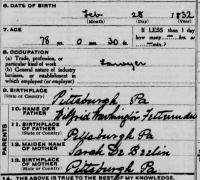 6. DATE OF BIRTH
Feb 28 1832
(Month) (Day) (Year)
7. AGE
If LESS than 1 day
how many hrs. or
min.
78 yrs. 0 mos. 30 ds.
8. OCCUPATION
(a) Trade, profession, or
particular kind of work
Lawyer
(b) General nature of industry
business, or establishment in
which employed (or employer)
9. BIRTHPLACE
Pittsburgh Pa
10. NAME OF
FATHER
11. BIRTHPLACE
OF FATHER
Pittsburgh Pa
12. MAIDEN NAME
OF MOTHER
Sarah
13. BIRTHPLACE
OF MOTHER
Pittsburgh Pa
PARENTS
14. THE ABOVE IS TRUE TO THE BEST OF MY KNOWLEDGE.